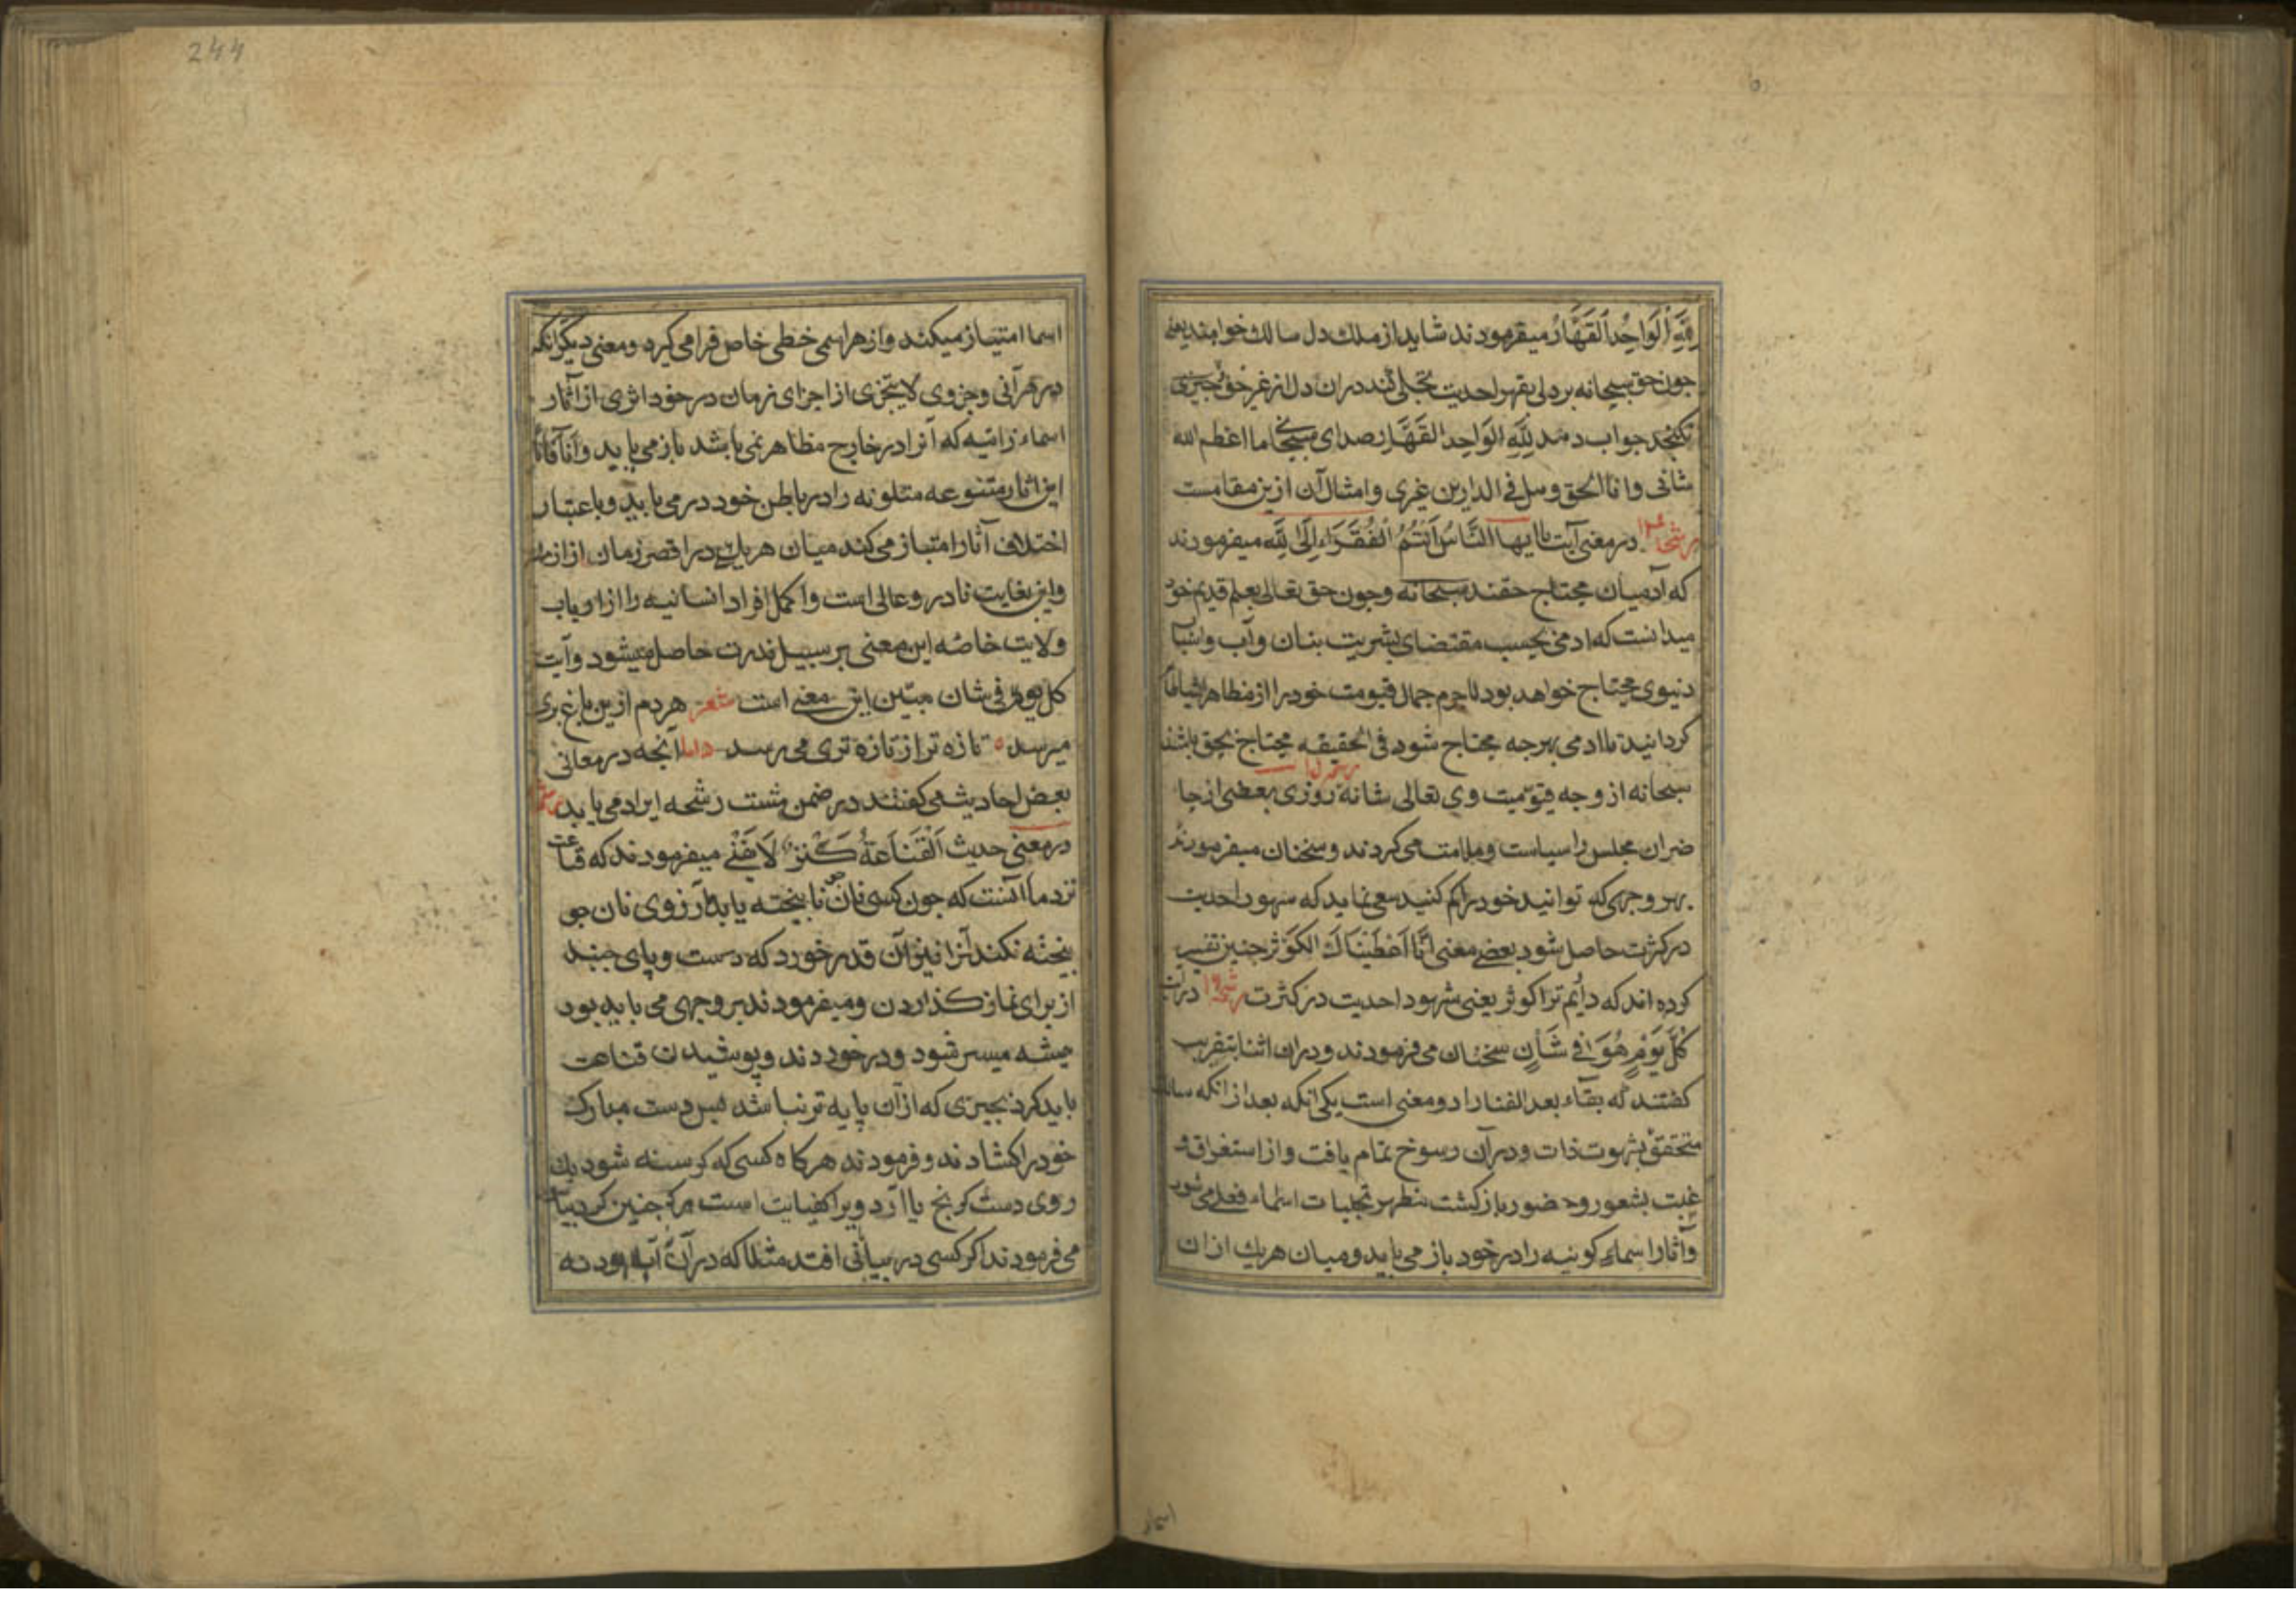 لِلّهِ الْوَاحِدِ الْقَهَّارُ میفرمودند شاید از ملك دل سالك خواهند یعنی
جون حق سبحانه بر دلی بقهر احدیت تجلی کند در ان دل از غیر حق چیزی
نکنجد جواب دهد لِلّهِ الوَاحِدِ القَهَّار صدای سبحانی ما اعظم الله
شانی وانا الحق وهل فی الدارین غیری و امثال آن ازین مقامست
رشحه در معنی آیت یا ایها النَّاسُ اَنْتُمُ الْفُقَرَاءِ اِلَی لِلَّهِ میفرمودند
که آدمیان محتاج حقند سبحانه وجون حق تعالی بعلم قدیم خود
میدانست که ادمی بحسب مقتضای بشریت بنان وآب واشیا
دنیوی محتاج خواهد بود لاجرم جمال قیومت خود را از مظاهر اشیا ظاهر
کردانید تا ادمی بهرجه محتاج شود فی الحقیقه محتاج بحق باشد
سبحانه از وجه قیومیت وی تعالی شانه رشحه روزی بعضی از حا
ضران مجلس را سیاست و ملامت می کردند و سخنان میفرمودند
بهر وجهی که توانید خود را کم کنید سعی نماید که شهود احدیت
در کثرت حاصل شود بعضے معنی انَّا اَعْطَیْنَاكَ الکَوْثَر جنین تفسیر
کرده اند که دادیم ترا کوثر یعنی شهود احدیت در کثرت رشحه در آیت
کُلَّ یَوْمٍ هُوَ فِے شَأنٍ سخنان می فرمودند و دران اثنا بتقریب
کفتند که بقاء بعد الفنا را دو معنی است یکی انکه بعد از انکه سالك
متحقق بشهوت ذات ودر آن رسوخ تمام یافت و از استغراق و
غیبت بشعور و حضور باز کشت مظهر تجلیات اسماء فعلی می شود
وآثار اسماء کونیه را در خود باز می یابد ومیان هریك از ان
اسما
244
اسما امتیاز میکند واز هر اسمی خطی خاص فرا می کیرد و معنی دیکر انکه
در هر آنی وجزوی لا یتجزی از اجزای زمان در خود اثری از آثار
اسماء ذاتیه که آنرا در خارج مظاهر نمی باشد باز می یابد و آنا فانا
این اثار متنوعه متلونه را در باطن خود در می یابد و باعتبار
اختلاف آثار امتیاز می کند میان هریك در اقصر زمان از ازمنه
واین بغایت نادر و عالی است واکمل افراد انسانیه را از ارباب
ولایت خاصه این معنی بر سبیل ندرت حاصل میشود وآیت
کل یوم فی شان مبین این معنی است شعر هردم ازین باغ بری
میرسد ٥ تازه تر از تازه تری می رسد واما آنجه در معانی
بعض احادیث می کفتند در ضمن هشت رشحه ایراد می یابد رشحه
در معنی حدیث اَلْقَنَاعَةُ کَنْزٌ لَا یَفْنَے میفرمودند که قناعت
نزد ما آنست که جون کسی نان نا بیخته یابد آرزوی نان جو
بیخته نکند آنرا نیز آن قدر خورد که دست و پای جنبد
از برای نماز کذاردن ومیفرمودند بر وجهی می باید بود
میسر شود ودر خوردند و پوشیدن قناعت
باید کرد بجیزی که از آن پایه تر نباشد پس دست مبارك
خود را کشادند و فرمودند هرکاه کسی که کرسنه شود یك
روی دست کرنج یا آرد ویرا کفایت است هرکه جنین کرد
می فرمودند اکر کسی در بیابانی افتد مثلا که در آن آب بود نه